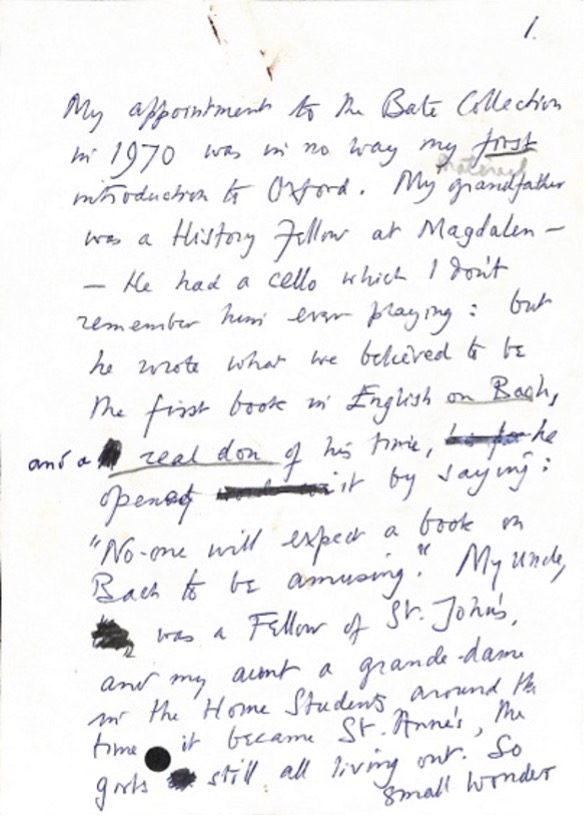 1.
My appointment to the Bate Collection
in 1970 was in no way my first
maternal
introduction to Oxford. My grandfather
was a History Fellow at Magdalen –
– He had a cello which I don't
remember him ever playing: but
he wrote what we believed to be
the first book in English on Bach,
and a real don of his time, he
opened it by saying:
"No-one will expect a book on
Bach to be amusing." My uncle,
was a Fellow of St. John's,
and my aunt a grande-dame
in the Home Students around the
time it became St. Anne's, the
girls still all living out. So
small wonder